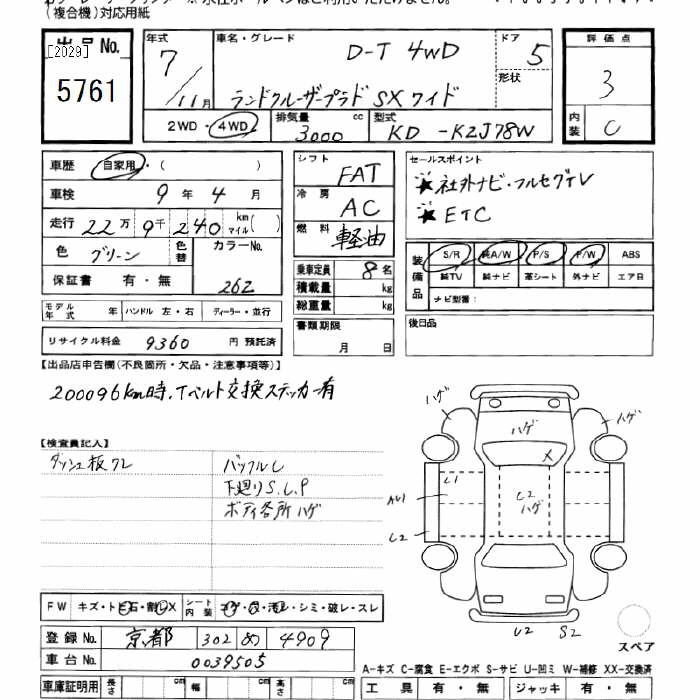 (複合機)対応用紙
出品No.
[2029]
5761
年式 7/11月
車名・グレード D-T 4WD
ランドクルーザープラド SXワイド
ドア 5
形状
2WD・4WD
排気量 3000 cc
型式 KD-KZJ78W
評価点
3
内装 C
車歴 自家用・( )
車検 9年4月
走行 22万9千240 km マイル( )
色 グリーン 色替 カラーNo. 262
保証書 有・無
モデル年式 年 ハンドル 左・右 ディーラー・並行
リサイクル料金 9360 円 預託済
シフト FAT
冷房 AC
燃料 軽油
乗車定員 8名
積載量 kg
総重量 kg
書類期限
月 日
セールスポイント
★社外ナビ・フルセグTV
★ETC
装備品 S/R 純A/W P/S P/W ABS
純TV 純ナビ 革シート 外ナビ エアB
ナビ型番:
後日品
【出品店申告欄(不良箇所・欠品・注意事項等)】
200096km時、Tベルト交換ステッカー有
【検査員記入】
ダッシュ板ワレ バックルし
下廻りS.C.P
ボディ各所ハゲ
ハゲ
ハゲ
ハゲ
X
L1
C2
ハゲ
AU1
L2
U2 S2
スペア
FW キズ・トビ石・割レX シート内装 コゲ・穴・汚レ・シミ・破レ・スレ
登録No. 京都 302 め 4909
車台No. 0039505
車庫証明用 長さ cm 幅 cm 高さ cm
A-キズ C-腐食 E-エクボ S-サビ U-凹ミ W-補修 XX-交換済
工具 有・無 ジャッキ 有・無